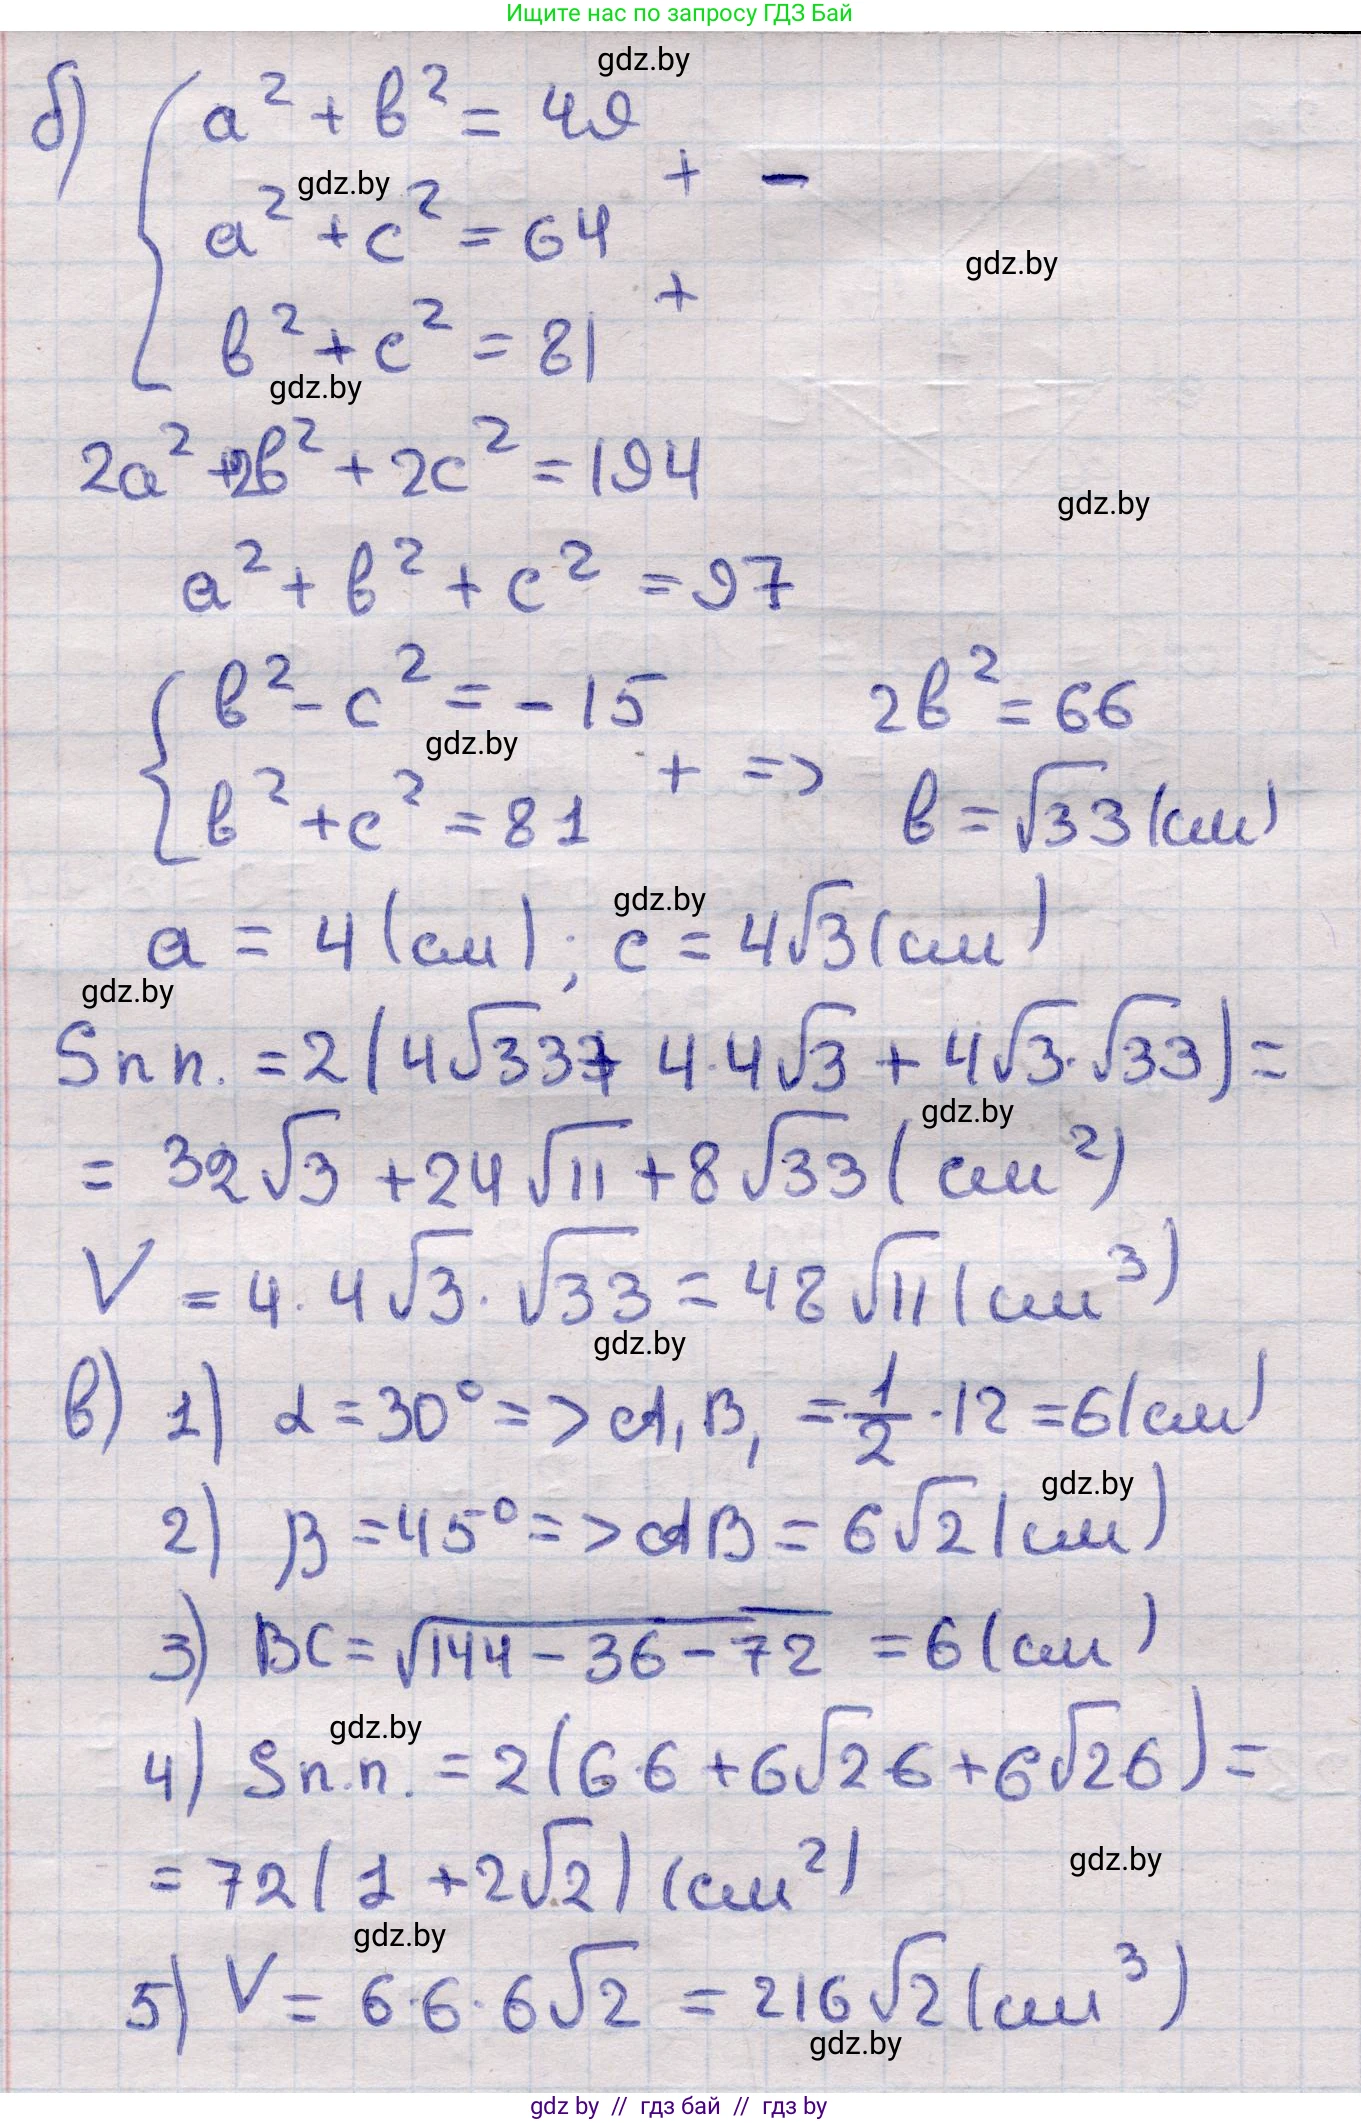 Ищите нас по запросу ГДЗ Бай
gdz.by
б) a² + b² = 49
gdz.by
+ -
a² + c² = 64
gdz.by
+
b² + c² = 81
gdz.by
2a² + 2b² + 2c² = 194
gdz.by
a² + b² + c² = 97
b² - c² = -15 2b² = 66
gdz.by
+ =>
b² + c² = 81 b = √33 (см)
gdz.by
a = 4 (см); c = 4√3 (см)
gdz.by
Sп.п. = 2(4√33 + 4·4√3 + 4√3·√33) =
gdz.by
= 32√3 + 24√11 + 8√33 (см²)
V = 4·4√3·√33 = 48√11 (см³)
gdz.by
в) 1) α = 30° => A₁B₁ = 1/2 · 12 = 6 (см)
gdz.by
2) β = 45° => AB = 6√2 (см)
3) BC = √144 - 36 - 72 = 6 (см)
gdz.by
4) Sп.п. = 2(6·6 + 6√2·6 + 6√2·6) =
gdz.by
= 72(1 + 2√2) (см²)
gdz.by
5) V = 6·6·6√2 = 216√2 (см³)
gdz.by
gdz.by // гдз бай // гдз by